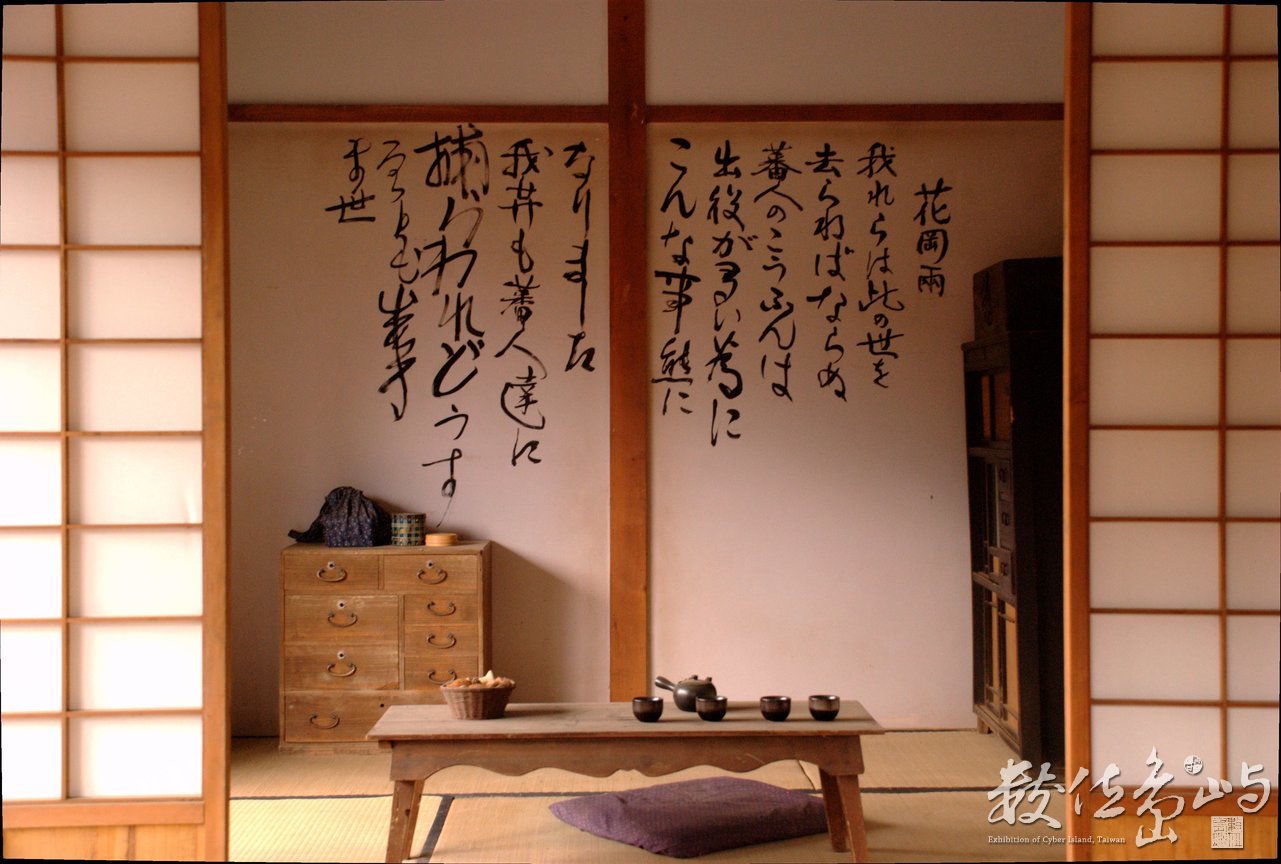 花岡両
我れらは此の世を
去らねばならぬ
蕃人のこうふんは
出役がるい為に
こんな事態に
なりました
我等も蕃人達に
捕らわれどうす
ま世
數位島嶼
Exhibition of Cyber Island, Taiwan